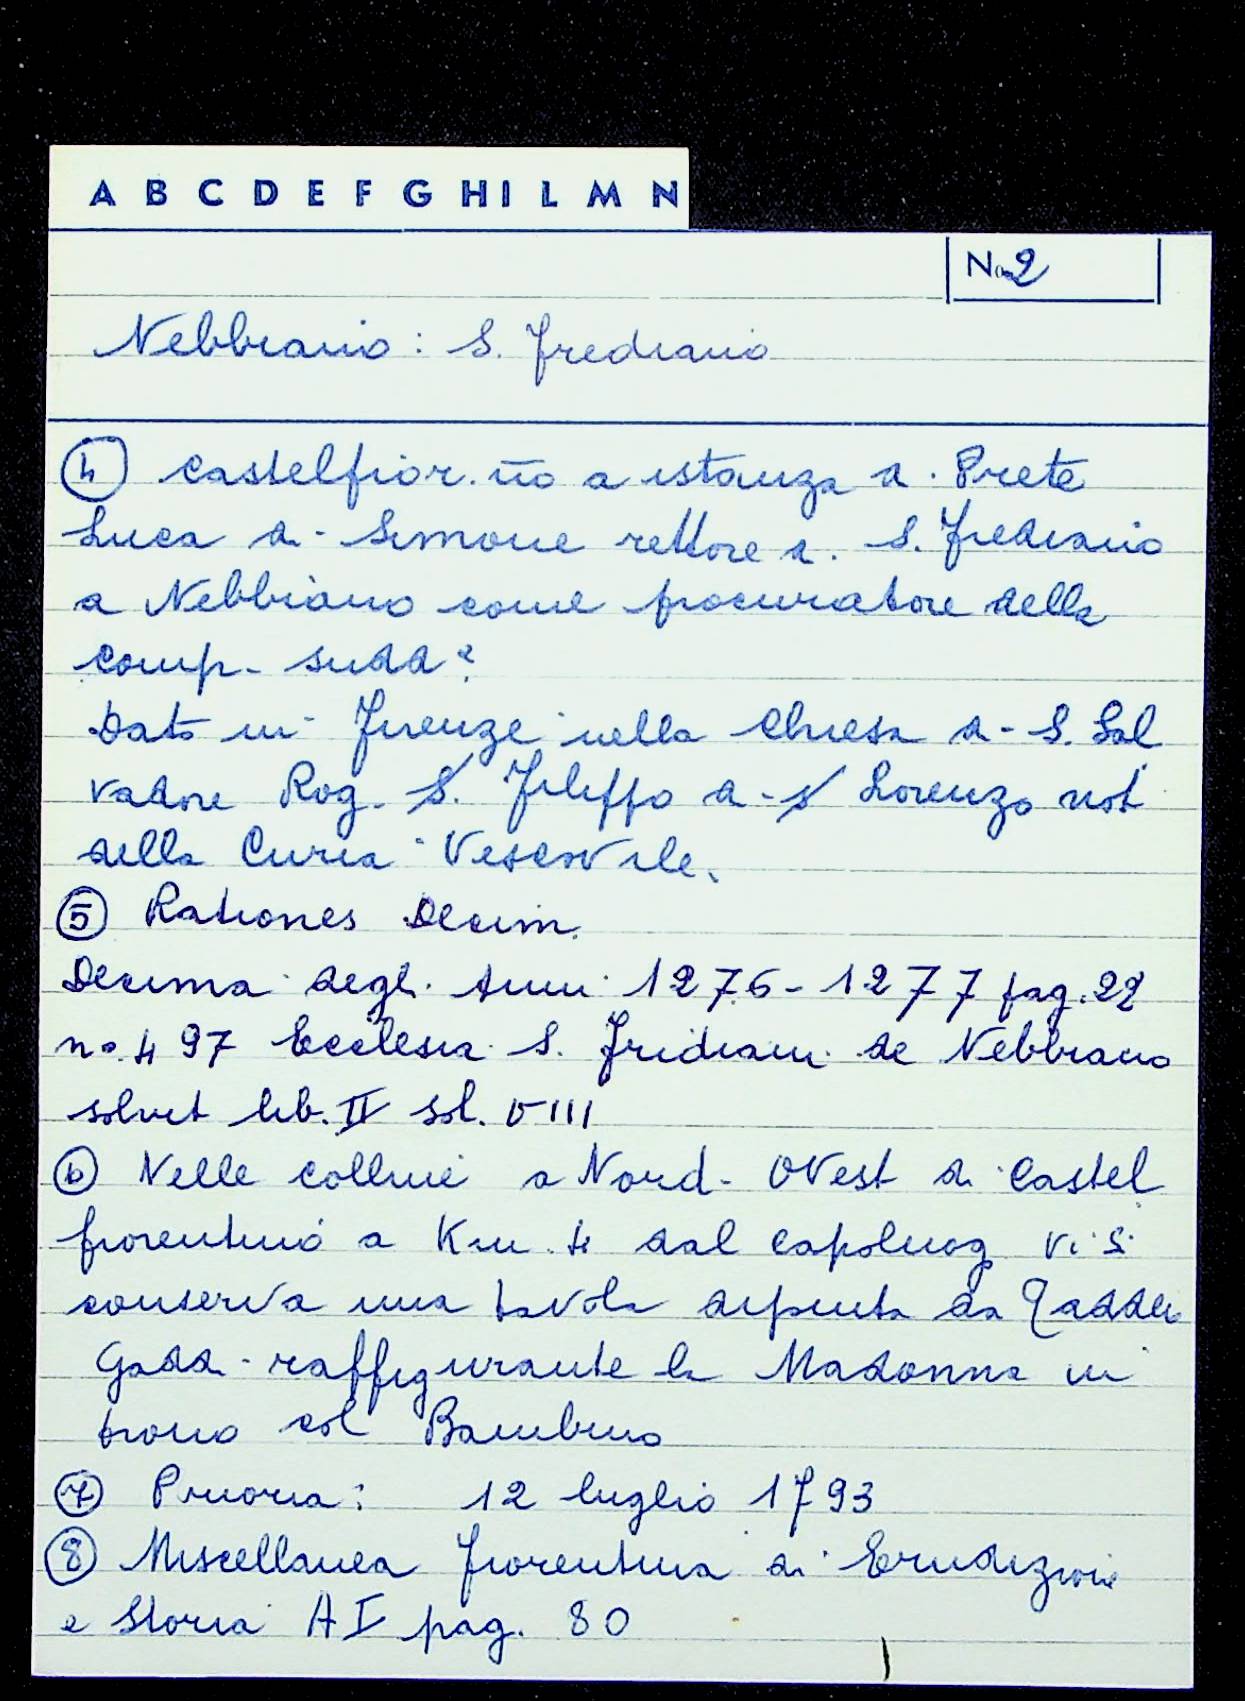 A B C D E F G H I L M N
No 2
Nebbiano: S. Frediano
④ Castelfior.no a istanza di Prete
Luca di Simone rettore di S. Frediano
a Nebbiano come procuratore della
comp. sudd.a
Dato in Firenze nella Chiesa di S. Sal
vadore Rog. S. Filippo di S Lorenzo not.
della Curia Vescovile.
⑤ Rationes Decim.
Decima degli Anni 1276-1277 pag. 22
no. 497 Ecclesia S. Fridiani de Nebbiano
solvet lib. II sol. VIII
⑥ Nelle colline a Nord-Ovest di Castel
fiorentino a Km. 4 dal capoluog. vi si
conserva una tavola dipinta da Taddeo
Gaddi raffigurante la Madonna in
trono col Bambino
⑦ Prioria: 12 luglio 1793
⑧ Miscellanea fiorentina di Erudizione
e Storia A I pag. 80